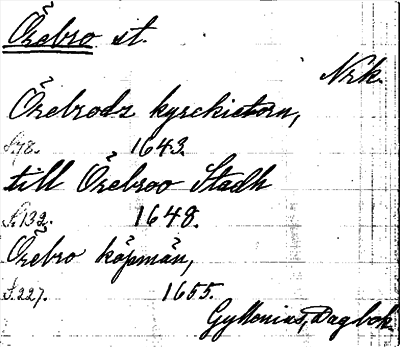 Örebro st.
Nrk.
Örebrodz kyrckietorn,
S.78. 1643.
till Örebroo Stadh
S.132. 1648.
Örebro köpmän,
S.227. 1655.
Gyllenius, Dagbok